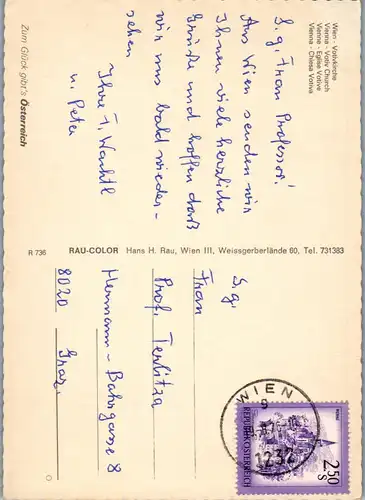 Wien - Votivkirche
Vienna - Votiv Church
Vienne - Eglise Votive
Vienna - Chiesa Votiva
S. g. Frau Professor!
Aus Wien senden wir
Ihnen viele herzliche
Grüße und hoffen daß
wir uns bald wieder-
sehen
Ihre F. Wachtl
u. Peter
Zum Glück gibt's Österreich
R 736
RAU-COLOR Hans H. Rau, Wien III, Weissgerberlände 60, Tel. 731383
S. g.
Frau
Prof. Terlitza
Hermann-Bahrgasse 8
8020 Graz
WIEN
1232
REPUBLIK ÖSTERREICH
2.50
S